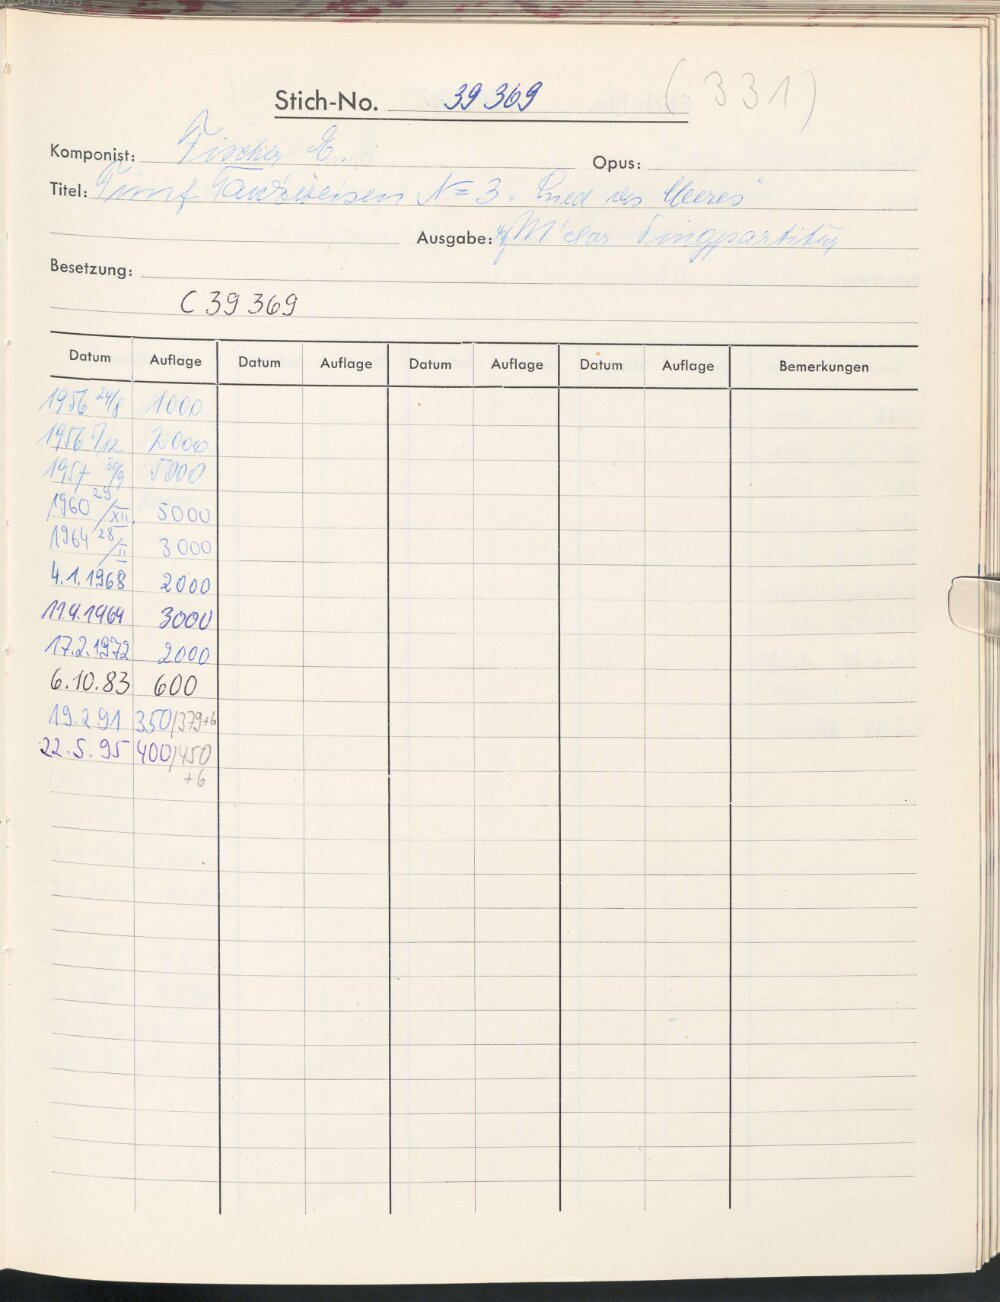 Stich-No. 39 369 (331)
Komponist: Fischer E. Opus:
Titel: Fünf Tanzweisen No 3. Lied des Meeres"
Ausgabe: M'chor Singpartitur
Besetzung:
C 39 369
Datum Auflage Datum Auflage Datum Auflage Datum Auflage Bemerkungen
1956 24/8 1000
1956 5/12 2000
1957 20/9 5000
1960 29/XII. 5000
1964 28/II 3000
4.1.1968 2000
11.4.1969 3000
17.2.1972 2000
6.10.83 600
19.2.91 350/379+6
22.5.95 400/450
+6